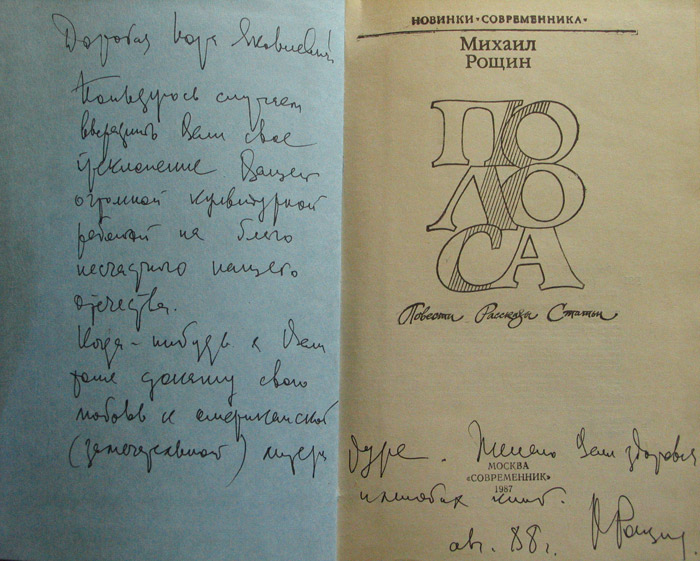 Дорогая Нора Яковлевна
Пользуюсь случаем
выразить Вам свое
преклонение Вашей
огромной культурной
работой на благо
несчастного нашего
отечества.
Когда-нибудь я Вам
тоже докажу свою
любовь к американской
(замечательной) литера
туре. Желаю Вам здоровья
и новых книг.
авг. 88 г.
М Рощин
НОВИНКИ • СОВРЕМЕННИКА •
Михаил
Рощин
ПО
ЛО
СА
Повести Рассказы Статьи
МОСКВА
«СОВРЕМЕННИК»
1987